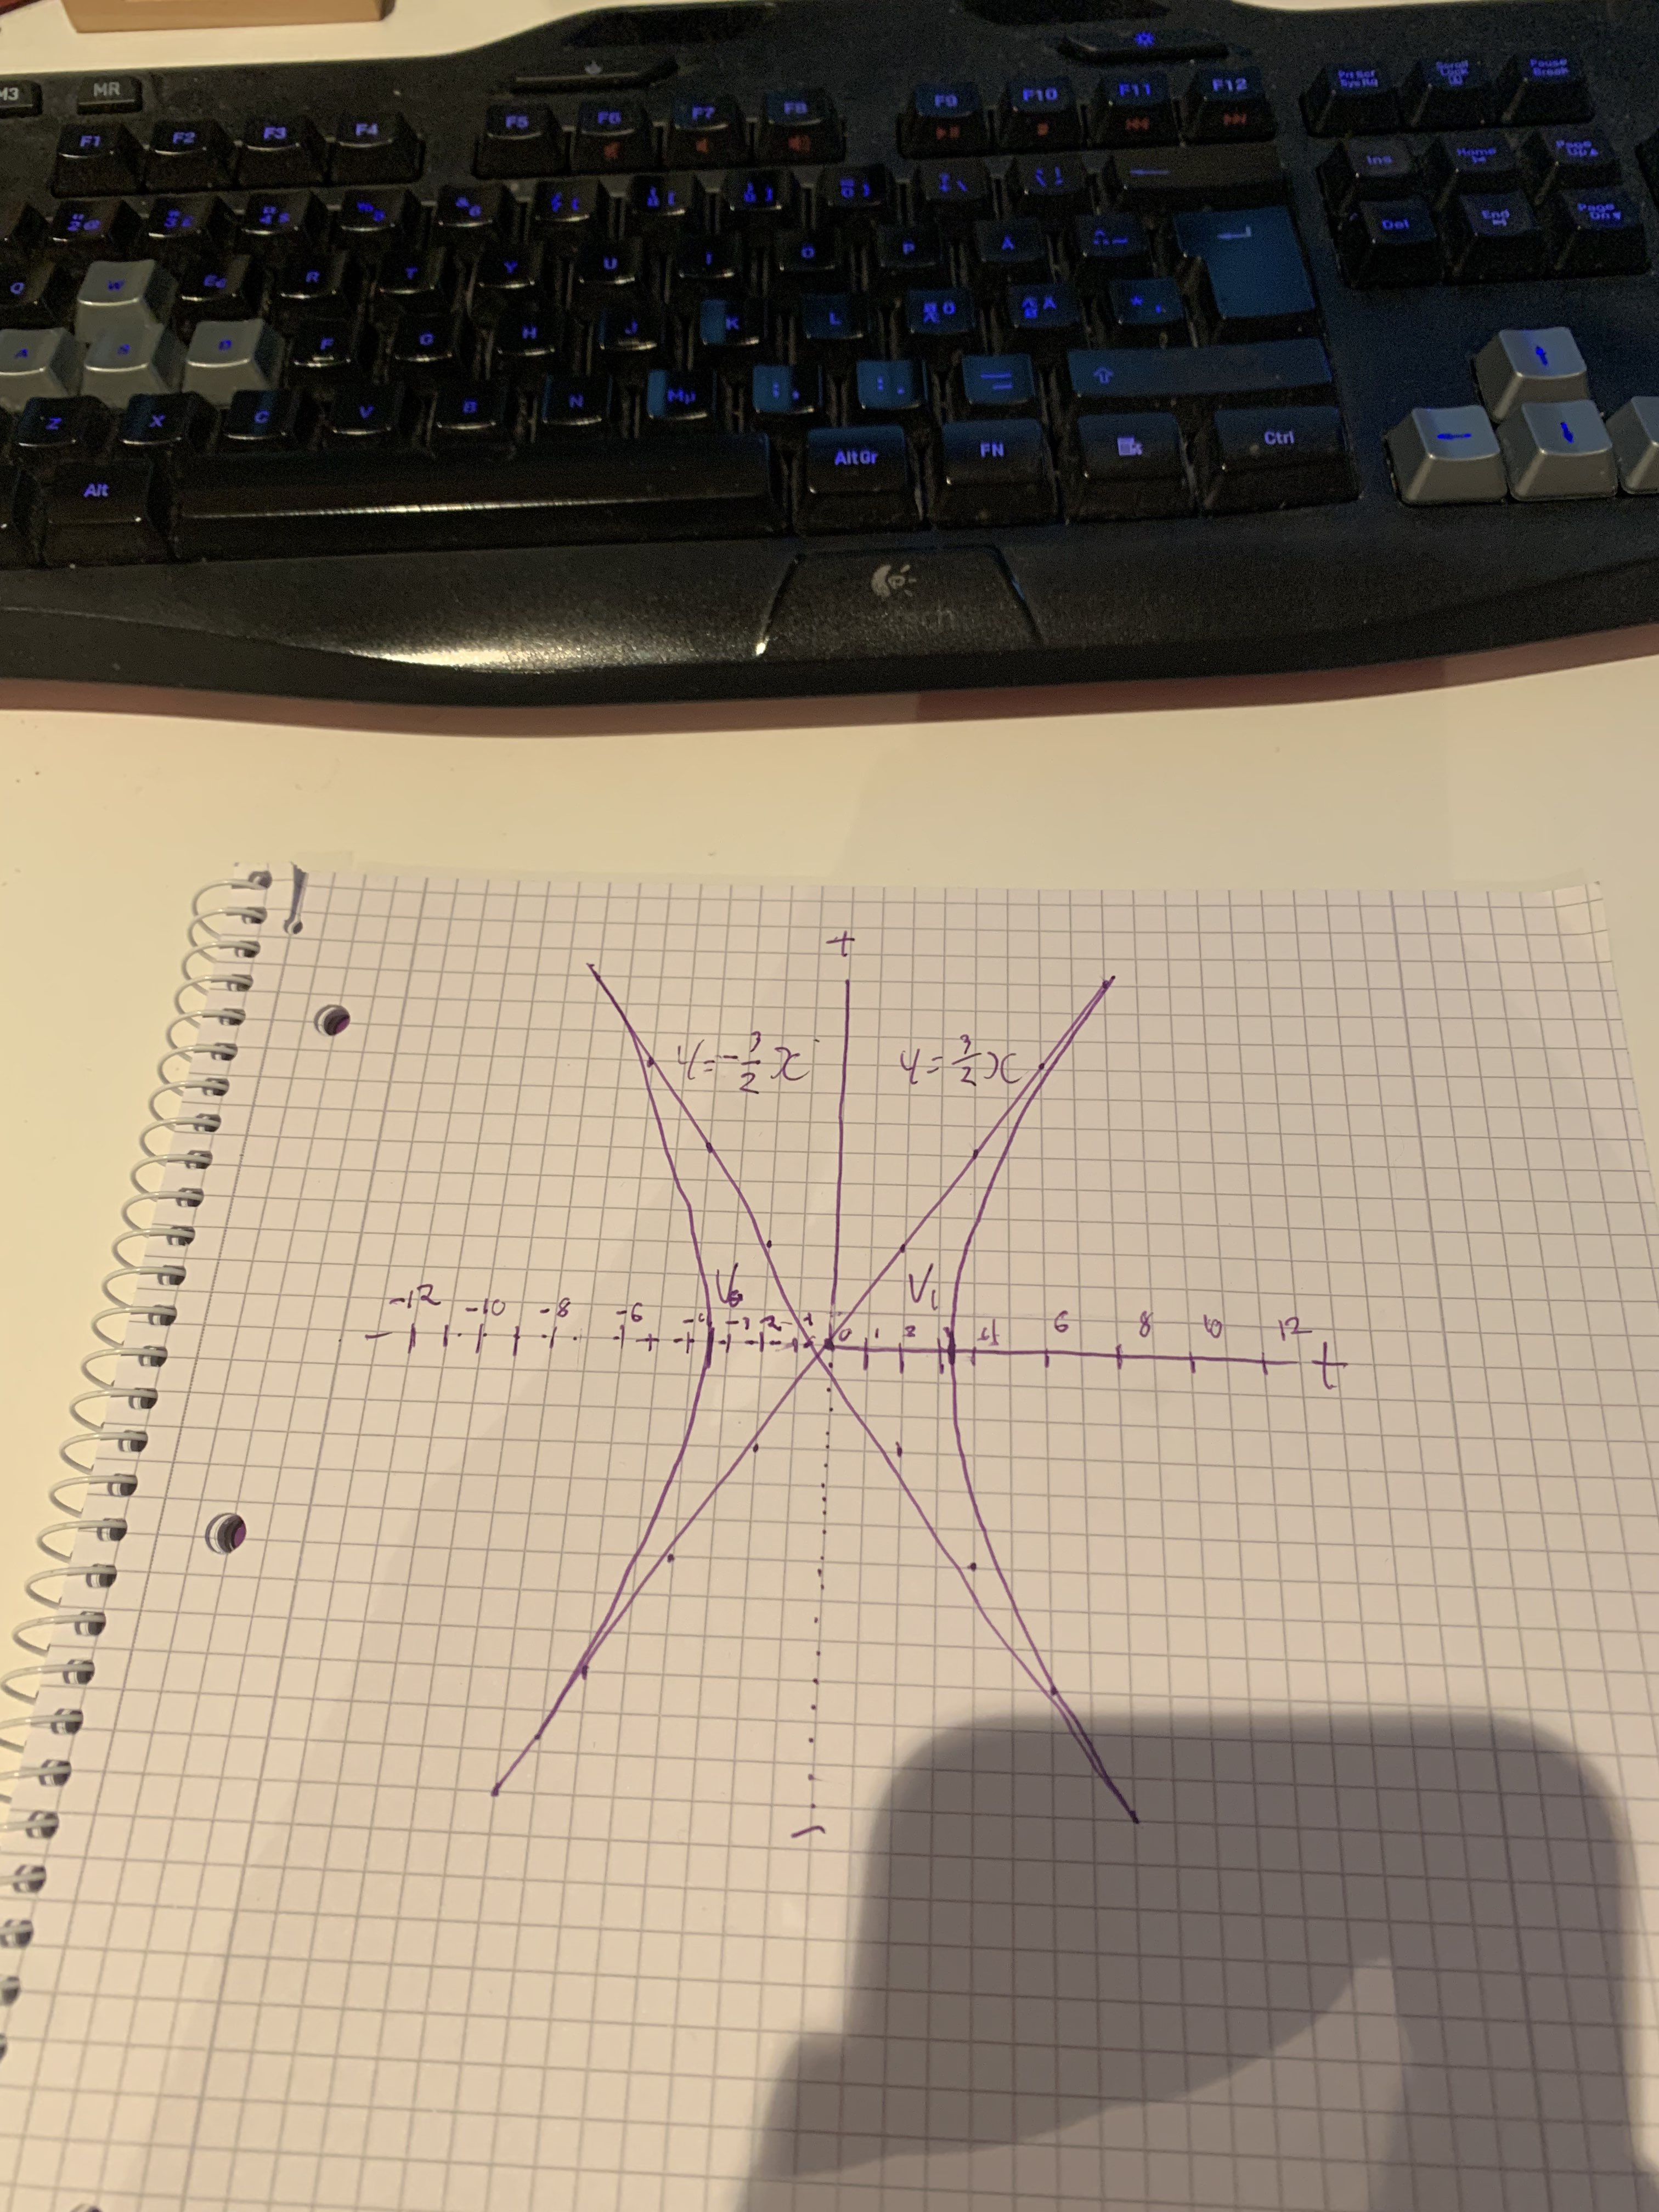 M3 MR
F1 F2 F3 F4 F5 F6 F7 F8 F9 F10 F11 F12 PrtScr SysRq Scroll Lock Pause Break
Ins Home Page Up
Q W E€ R T Y U I O P Å Del End Page Dn
A S D F G H J K L
Z X C V B N Mµ
Alt Alt Gr FN Ctrl
+
y=-3/2x y=3/2x
V₁
-12 -10 -8 -6 -3 -2 -1 0 1 2 3 4 6 8 10 12
- +
-